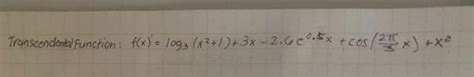 Transcendental Function: f(x) = log₃(x²+1)+3x-2.6e^0.5x + cos(2π/3 x) + x²